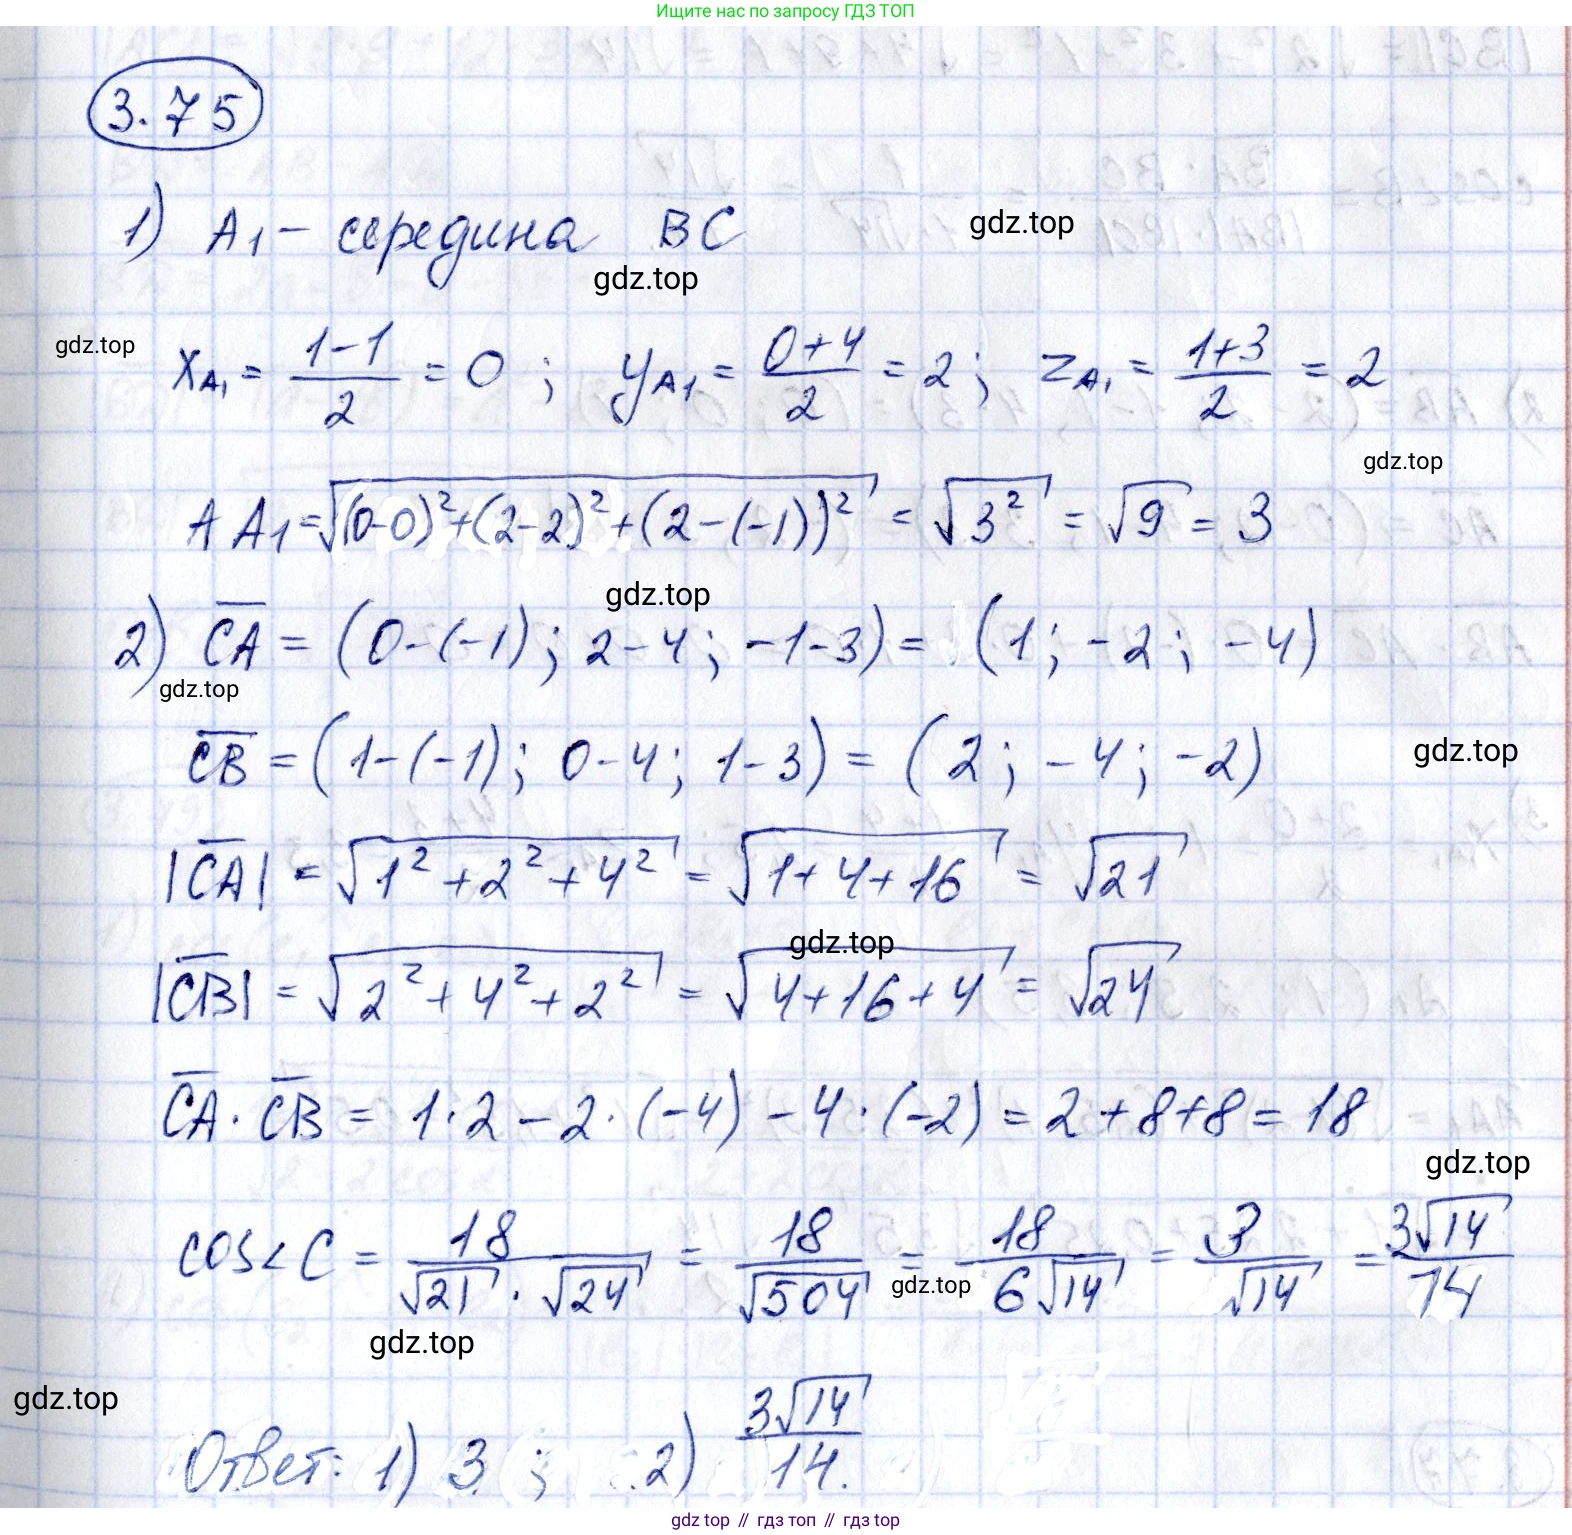 Ищите нас по запросу ГДЗ ТОП
3.75
1) A₁ – середина BC
gdz.top
gdz.top
gdz.top
x_A₁ = (1-1)/2 = 0 ; y_A₁ = (0+4)/2 = 2 ; z_A₁ = (1+3)/2 = 2
gdz.top
AA₁ = √((0-0)²+(2-2)²+(2-(-1))²) = √(3²) = √9 = 3
gdz.top
2) C̅A̅ = (0-(-1) ; 2-4 ; -1-3) = (1 ; -2 ; -4)
gdz.top
C̅B̅ = (1-(-1) ; 0-4 ; 1-3) = (2 ; -4 ; -2)
gdz.top
|C̅A̅| = √(1²+2²+4²) = √(1+4+16) = √21
gdz.top
|C̅B̅| = √(2²+4²+2²) = √(4+16+4) = √24
C̅A̅ · C̅B̅ = 1·2 - 2·(-4) - 4·(-2) = 2+8+8 = 18
gdz.top
cos∠C = 18/(√21 · √24) = 18/√504 = 18/(6√14) = 3/√14 = 3√14/14
gdz.top
gdz.top
gdz.top
Ответ: 1) 3 ; 2) 3√14/14.
gdz top // гдз топ // гдз top